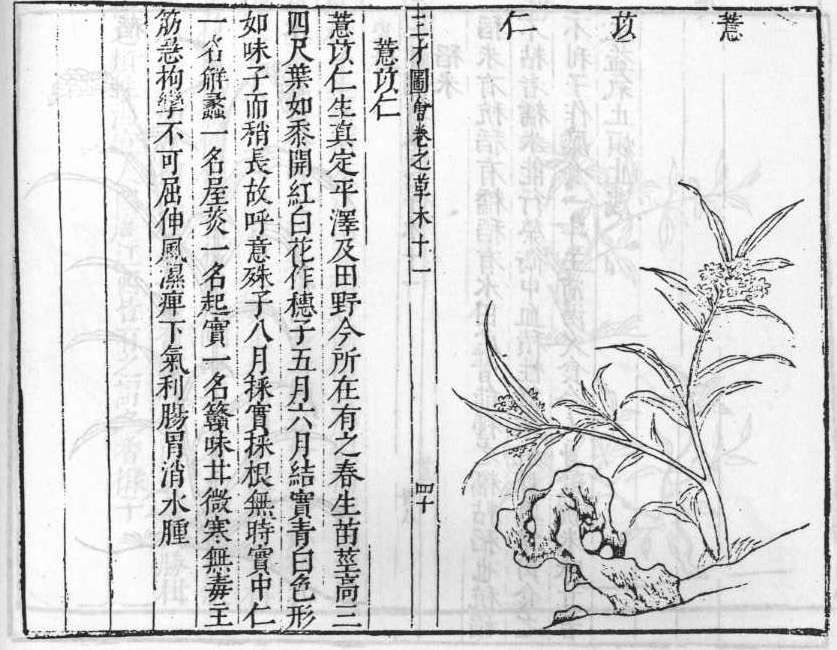 薏苡仁
三才圖會卷之草木十一 四十
薏苡仁
薏苡仁生真定平澤及田野今所在有之春生苗莖高三
四尺葉如黍開紅白花作穗子五月六月結實青白色形
如味子而稍長故呼意殊子八月採實採根無時實中仁
一名解蠡一名屋菼一名起實一名贛味甘微寒無毒主
筋急拘攣不可屈伸風濕痺下氣利腸胃消水腫